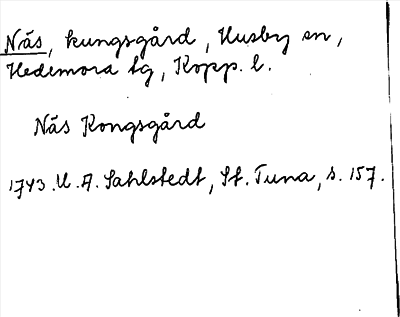 Näs, kungsgård, Husby sn,
Hedemora tg, Kopp. l.
Näs Kongsgård
1743. U. A. Sahlstedt, St. Tuna, s. 157.